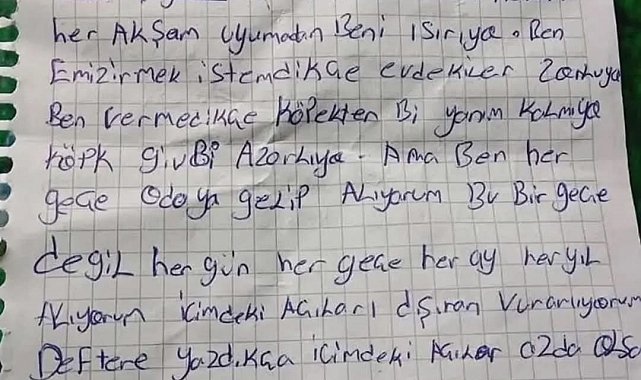 her AKŞam Uyumadan Beni ISırıya. Ben
Emizirmek istemdikae evdekiler Zorluya
Ben vermedikae Köpekten Bi yanım Kalmıya
Köpk givBi Azorlıya. Ama Ben her
geGe Odaya gelip ALıyorum Bu Bir geGe
degiL her gün her geGe her ay her yıL
ALıyorum icimdeki AGıları dışıran Vurarlıyorum
DEFtere yazdıkGa icimdeki AGılar azda OLsa